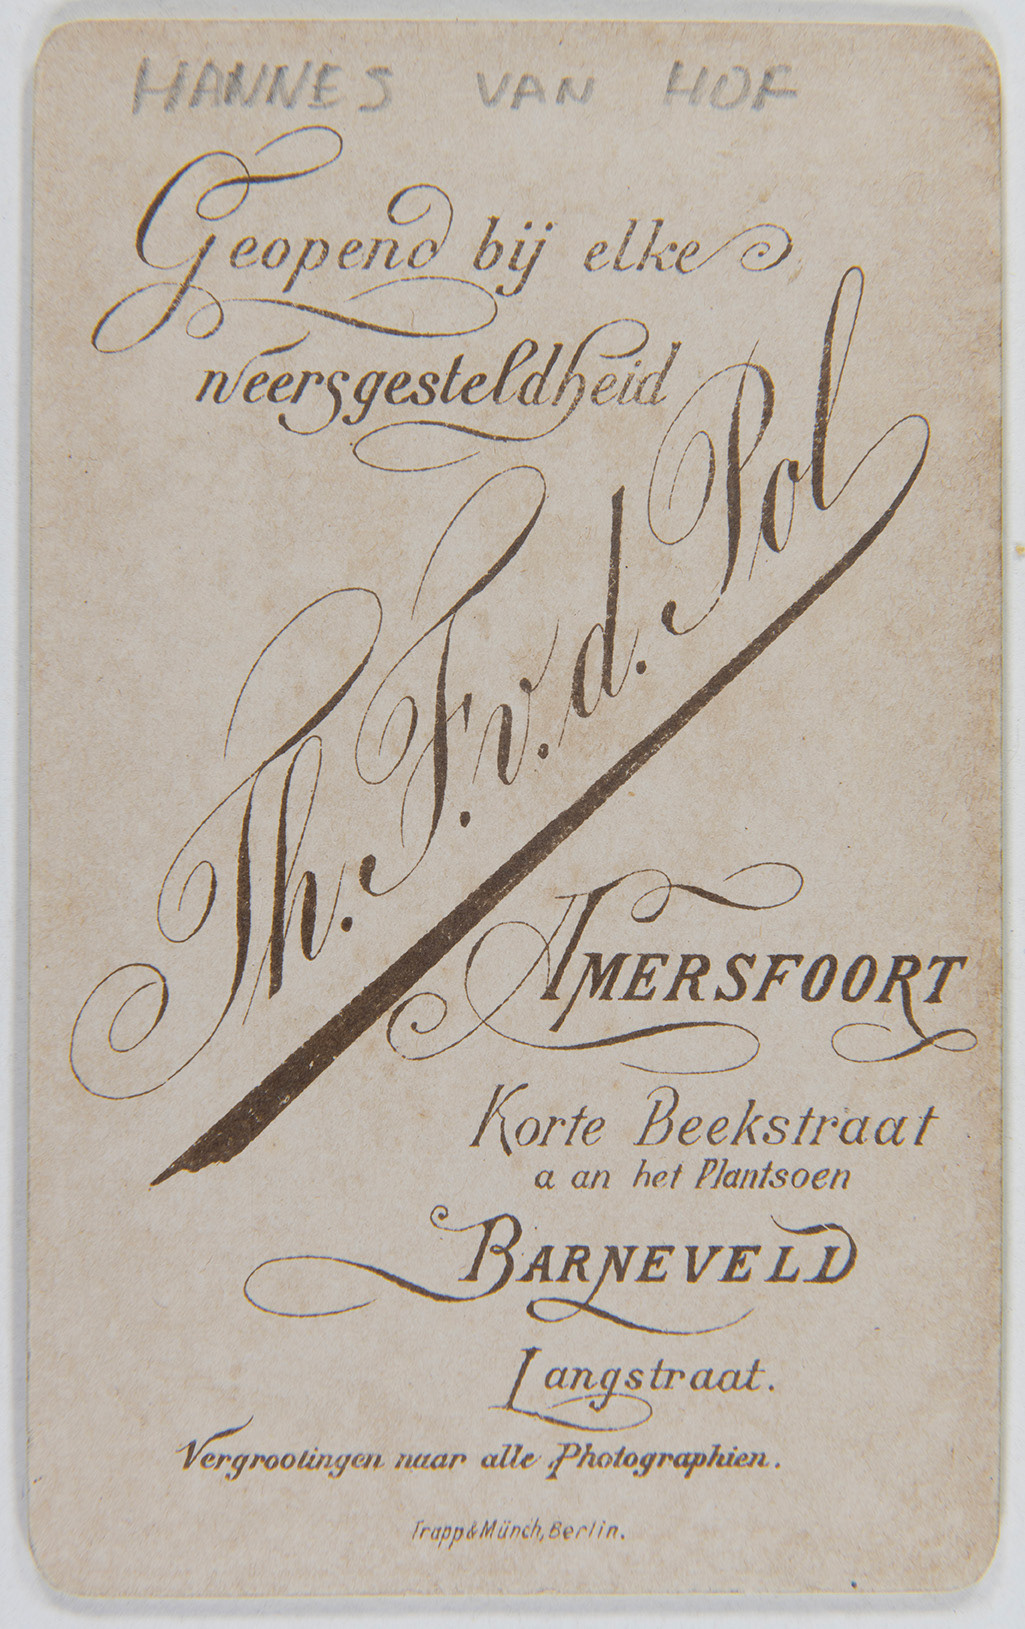 HANNES VAN HOF
Geopend bij elke
weersgesteldheid
Th. F. v. d. Pol
AMERSFOORT
Korte Beekstraat
a an het Plantsoen
BARNEVELD
Langstraat.
Vergrootingen naar alle Photographien.
Trapp & Münch, Berlin.